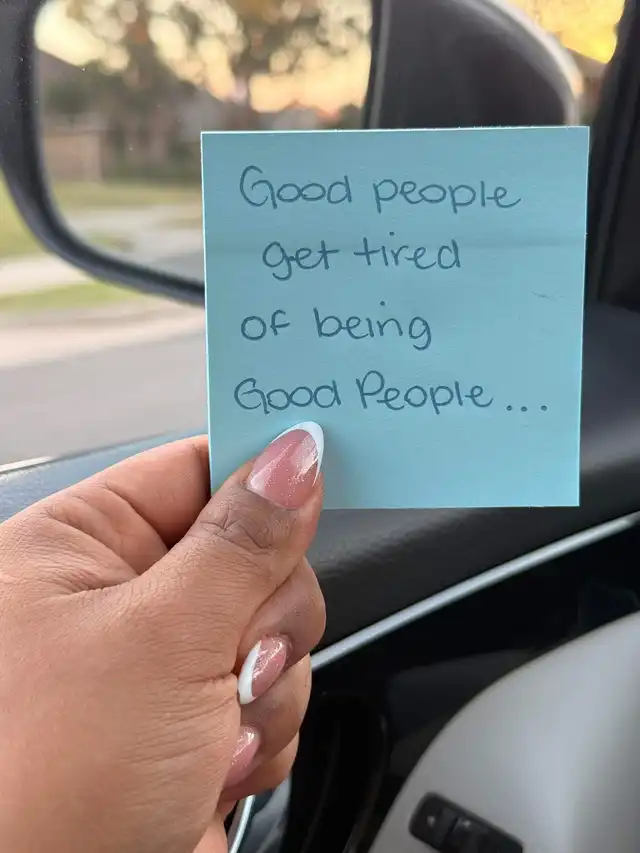 Good people
get tired
of being
Good People...